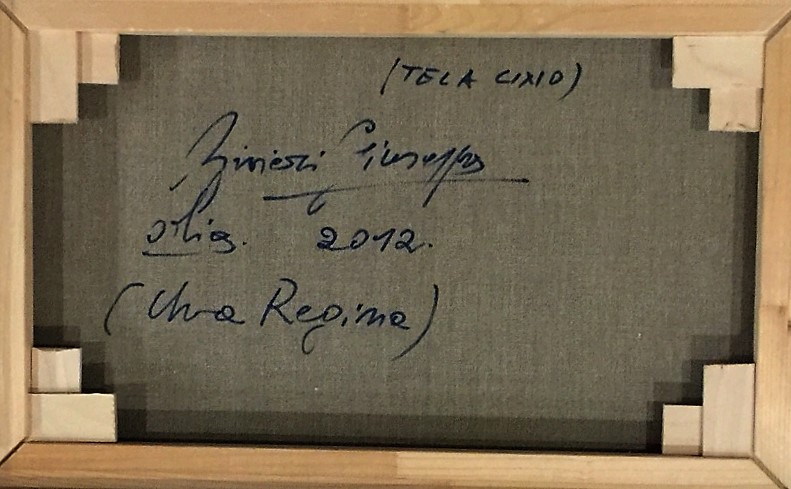 (TELA LIXIO)
Giuseppe
olio. 2012.
(Uva Regina)